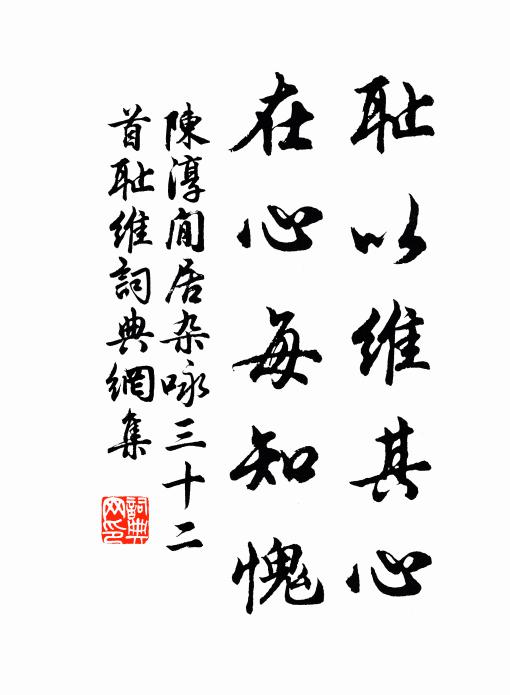 耻以维其心
在心每知愧
陳淳閒居杂咏三十二
首耻维詞典網集
詞典
网印